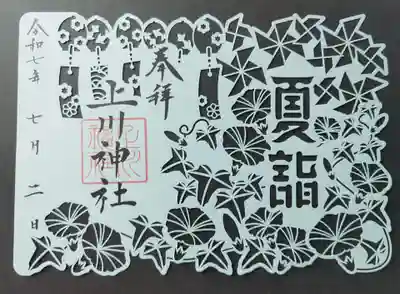 夏詣
奉拝
上川神社
令和七年 七月 二日